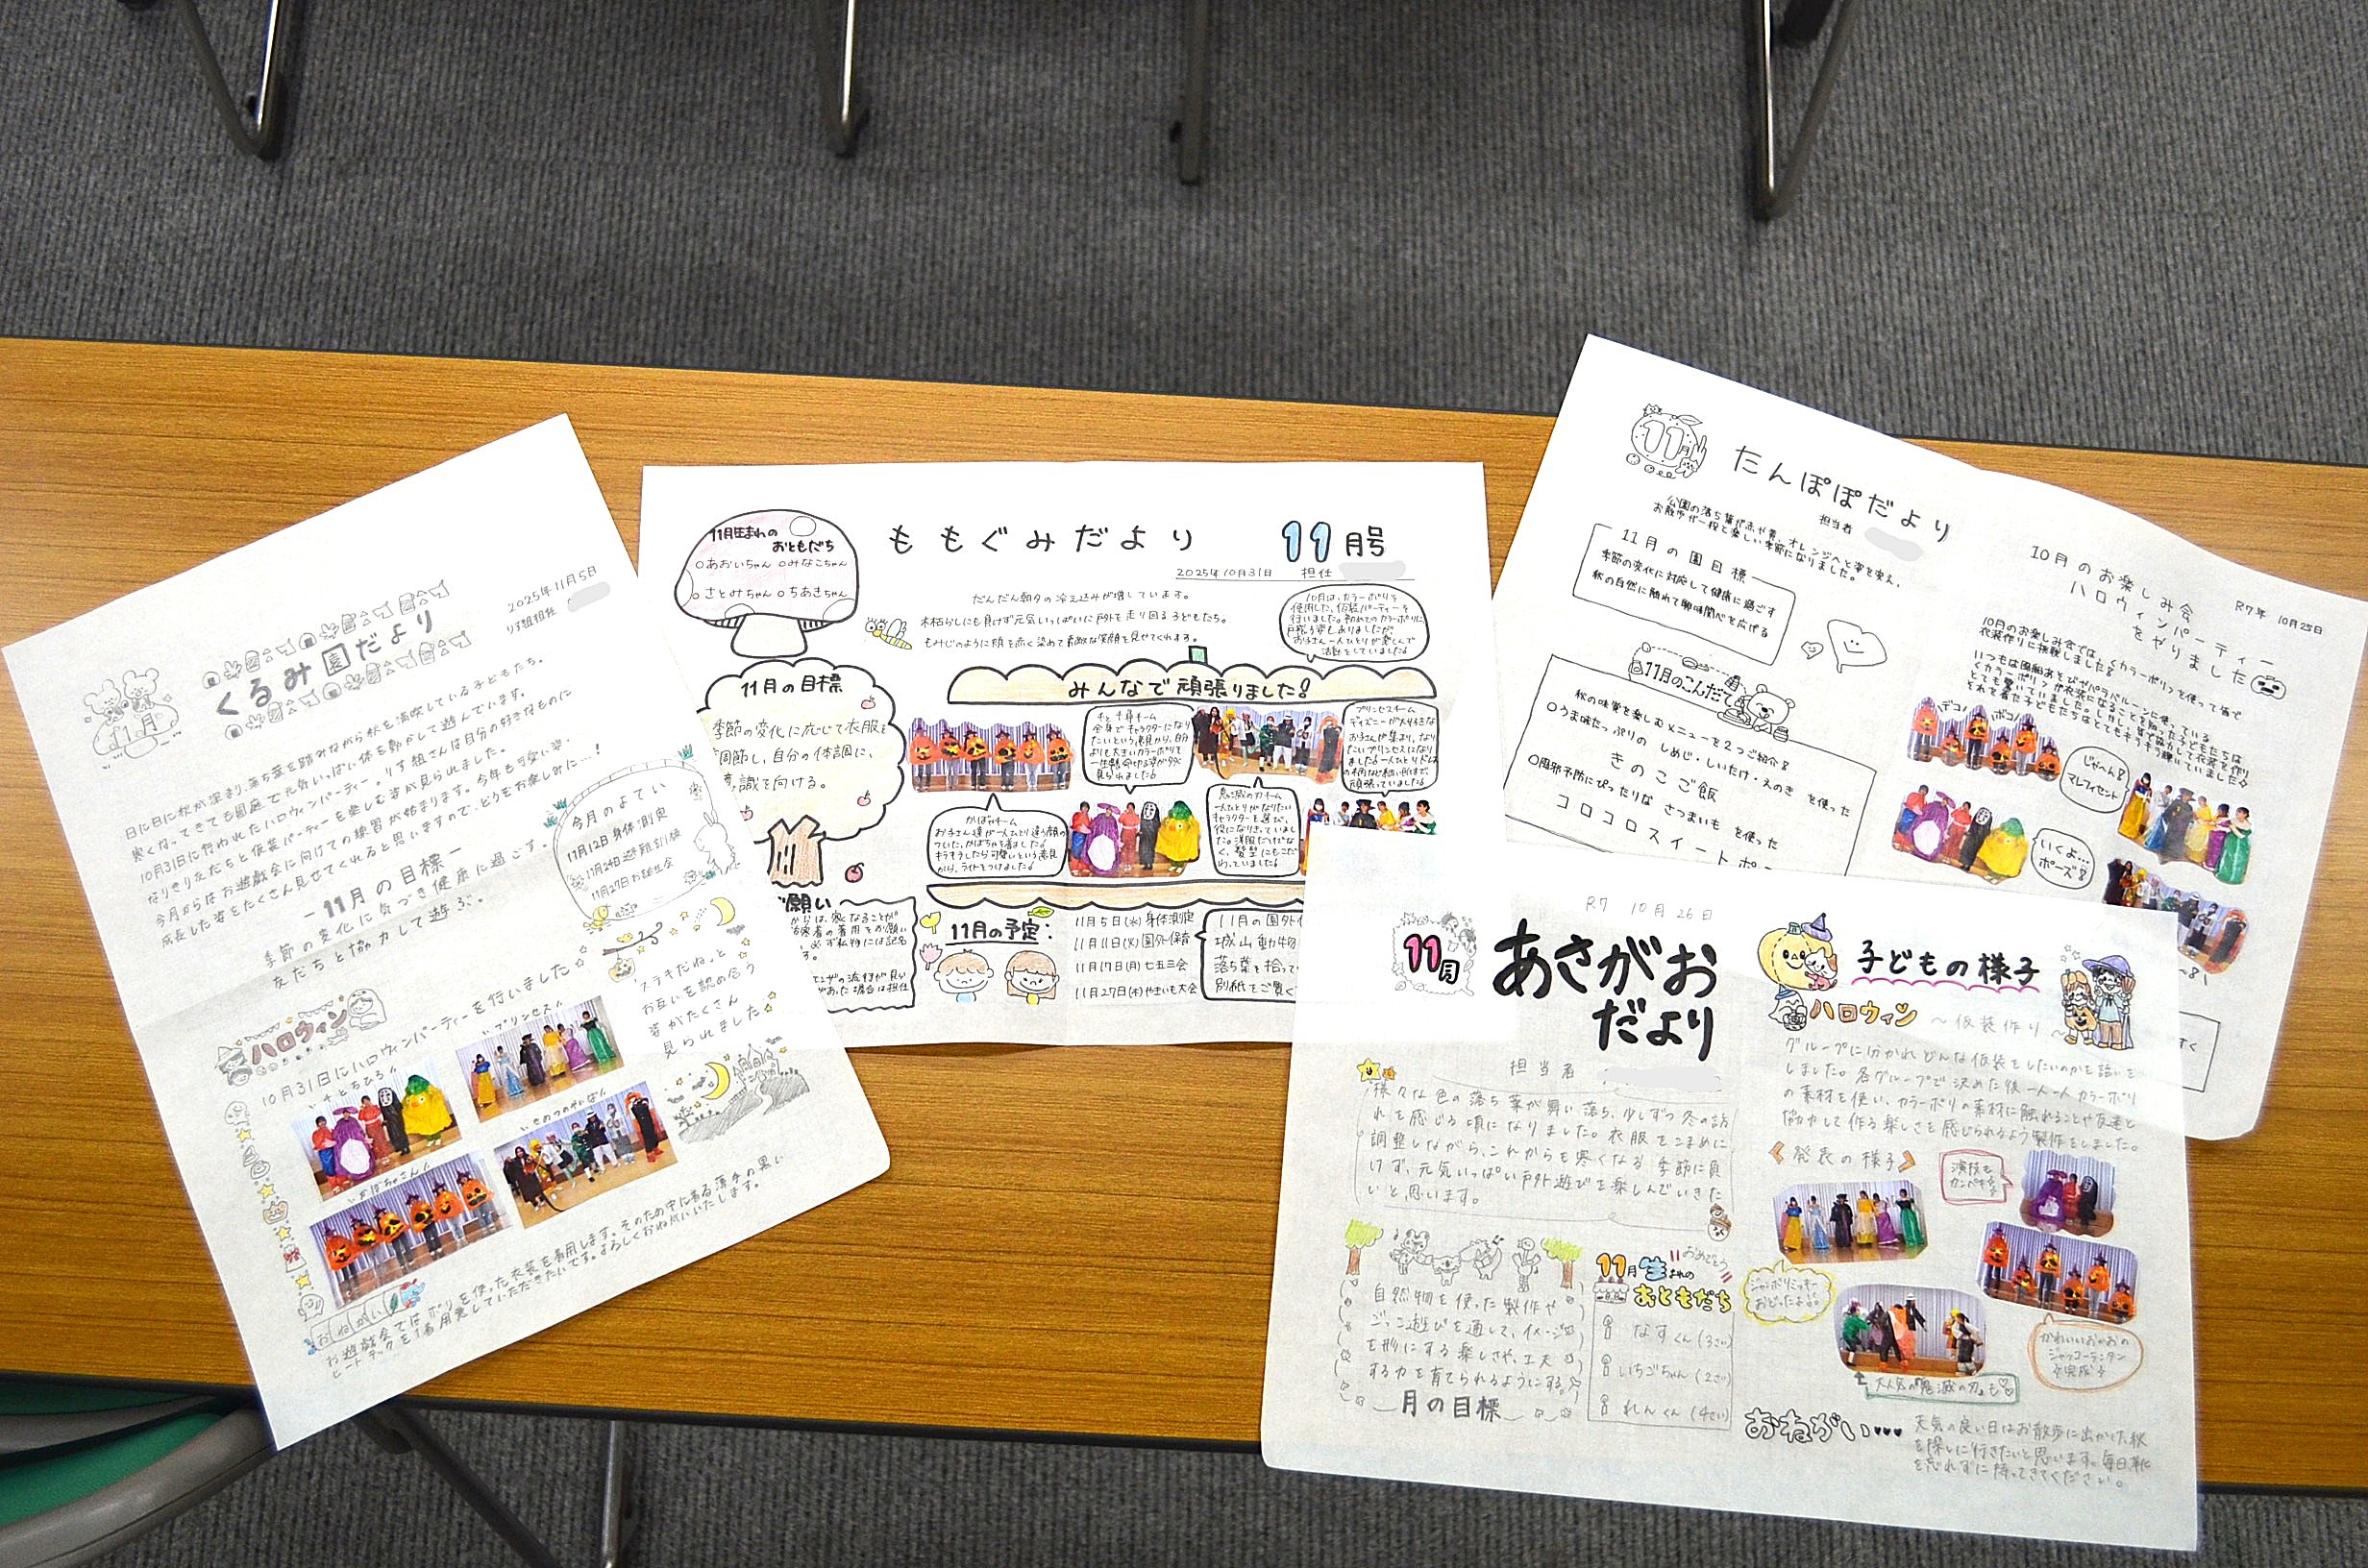 11月
くるみ園だより
2025年11月5日
りす組担任
日に日に秋が深まり、落ち葉を踏みながら秋を満喫している子どもたち。
寒くなってきても園庭で元気いっぱい体を動かして遊んでいます。
10月31日に行われたハロウィンパーティー。りす組さんは自分の好きなものに
なりきり友だちと仮装パーティーを楽しむ姿が見られました。
今月からはお遊戯会に向けての練習が始まります。今年も可愛い姿、
成長した姿をたくさん見せてくれると思いますので、どうぞお楽しみに…！
ー11月の目標ー
季節の変化に気づき健康に過ごす。
友だちと協力して遊ぶ。
今月のよてい
11月12日 身体測定
11月24日 避難訓練
11月27日 お誕生会
ハロウィン
10月31日にハロウィンパーティーを行いました☆
千とちひろ
プリンセス
かぼちゃさん
きめつのやいば
ステキだねっと
お互いを認め合う
姿がたくさん
見られました☆
おねがい
お遊戯会ではポリを使った衣装を着用します。そのため中に着る薄手の黒い
ヒートテックを1着用意していただきたいです。よろしくおねがいいたします。
11月生まれの
おともだち
○あおいちゃん ○みなこちゃん
○さとみちゃん ○ちあきちゃん
ももぐみだより 11月号
2025年10月31日 担任
だんだん朝夕の冷え込みが増しています。
木枯らしにも負けず元気いっぱいに戸外を走り回る子どもたち。
もみじのように頬を赤く染めて素敵な笑顔を見せてくれます。
10月は、カラーポリを
使用した、仮装パーティーを
行いました。初めてのカラーポリに
戸惑う姿もありましたが、
お子さん一人ひとりが楽しんで
活動をしていました！
11月の目標
季節の変化に応じて衣服を
調節し、自分の体調に、
意識を向ける。
みんなで頑張りました！
千と千尋チーム
全身でキャラクターになり
たいという意見から、自分
よりも大きいカラーポリを
一生懸命切る姿が多く
見られました！
プリンセスチーム
ディズニーが大好きな
お子さんが集まり、なり
たいプリンセスになり
ました！
かぼちゃチーム
お子さん達が一人ひとり違う顔の
ついた、かぼちゃを着ました！
キラキラしたら可愛いという意見
から、ライトをつけました！
鬼滅の刃チーム
一人ひとりがなりたい
キャラクターを選び、
役になりきっていまし
た。洋服だけでな
く、髪型にもこだ
わっていました！
お願い
11月の予定：
11月5日(水) 身体測定
11月11日(火) 園外保育
11月17日(月) 七五三会
11月27日(木) やきいも大会
11月の園外
城山動物
落ち葉を拾って
別紙をご覧く
11月
たんぽぽだより
担当者
公園の落ち葉が赤や黄、オレンジへと姿を変え、
お散歩が一段と楽しい季節になりました。
11月の園目標
季節の変化に対応して健康に過ごす
秋の自然に触れて興味関心を広げる
11月のこんだて
秋の味覚を楽しむメニューを2つご紹介！
○うま味たっぷりの しめじ・しいたけ・えのき を使った
きのこご飯
○風邪予防にぴったりな さつまいも を使った
コロコロスイートポ
R7年 10月25日
10月のお楽しみ会
ハロウィンパーティー
をやりました
10月のお楽しみ会では、〈カラーポリ〉を使って皆で
衣装作りに挑戦しました！
いつもは風船あそびやパラバルーンに使っている
〈カラーポリ〉が衣装になることを知った子どもたちは
とても驚いていました。しかし、皆で協力して衣装を作り
それを着た子どもたちはとてもキラキラ輝いていました☆
デコ！
ボコ！
じゃーん！
マレフィセント
いくよ…
ポーズ！
R7 10月26日
11月
あさがお
だより
担当者
様々な色の落ち葉が舞い落ち、少しずつ冬の訪
れを感じる頃になりました。衣服をこまめに
調整しながら、これからも寒くなる季節に負
けず、元気いっぱい戸外遊びを楽しんでいきた
いと思います。
自然物を使った製作や
ごっこ遊びを通して、イメージ
を形にする楽しさや、工夫
する力を育てられるようにする。
月の目標
おめでとう
11月生まれの
おともだち
なすくん（3さい）
いちごちゃん（2さい）
れんくん（4さい）
子どもの様子
ハロウィン ～仮装作り～
グループに分かれどんな仮装をしたいのかを話いを
しました。各グループで決めた後一人一人カラーポリ
の素材を使い、カラーポリの素材に触れることや友達と
協力して作る楽しさを感じられるよう製作をしました。
発表の様子
演技も
カンペキ
ジャンボリミッキー
おどったよ
かわいいおかおの
ジャッコーランタン
が完成
大人気の『鬼滅の刃』も♡
おねがい♥♥♥
天気の良い日はお散歩に出かけ、秋
を探しに行きたいと思います。毎日靴
を忘れずに持ってきてください。